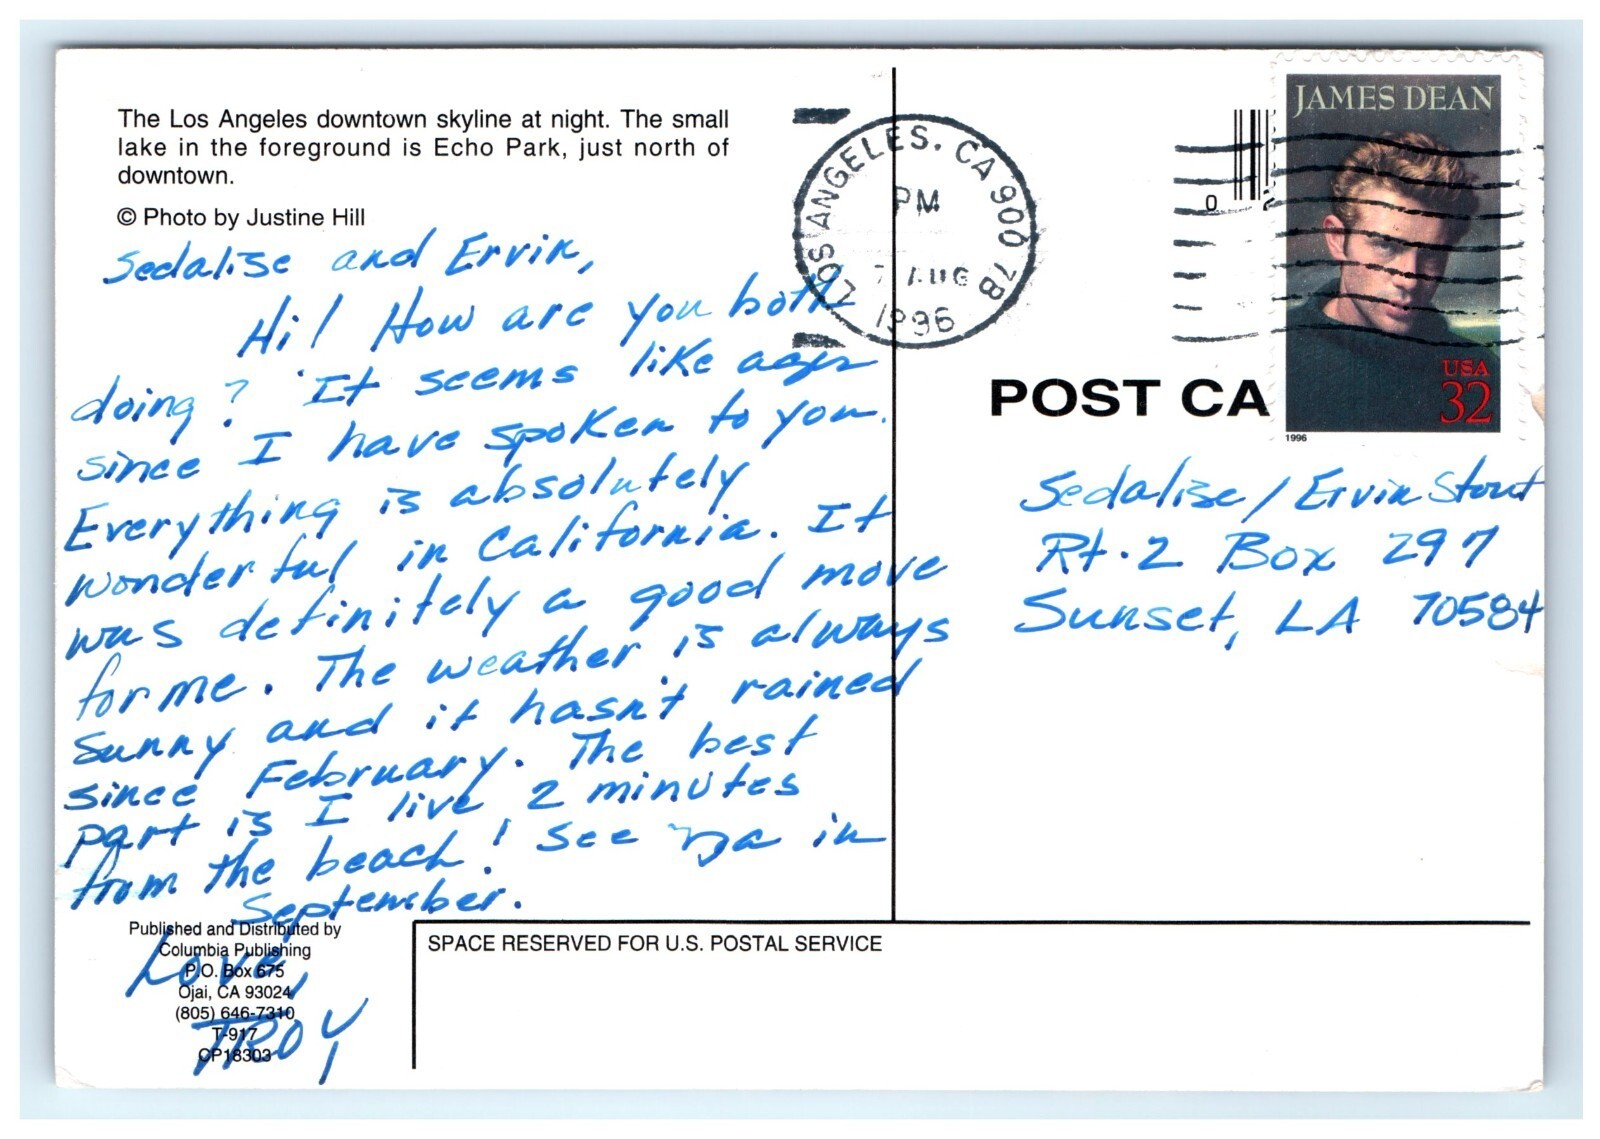 The Los Angeles downtown skyline at night. The small
lake in the foreground is Echo Park, just north of
downtown.
© Photo by Justine Hill
Sedalise and Ervin,
Hi! How are you both
doing? It seems like ages
since I have spoken to you.
Everything is absolutely
wonderful in California. It
was definitely a good move
for me. The weather is always
sunny and it hasn't rained
since February. The best
part is I live 2 minutes
from the beach! See ya in
September.
Love,
TROY
Published and Distributed by
Columbia Publishing
P.O. Box 675
Ojai, CA 93024
(805) 646-7310
T-917
CP18303
LOS ANGELES, CA 900 7B
PM
7 AUG
1996
0
JAMES DEAN
USA
32
1996
POST CA
Sedalise / Ervin Stout
Rt. 2 Box 297
Sunset, LA 70584
SPACE RESERVED FOR U.S. POSTAL SERVICE